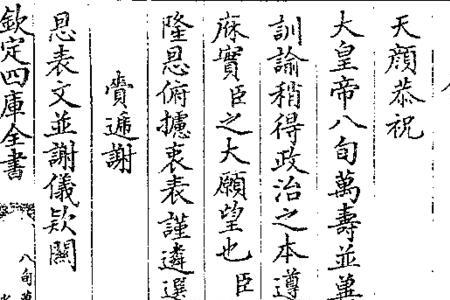 天顔恭祝
大皇帝八旬萬壽並
訓諭稍得政治之本遵
庥實臣之大願望也臣
隆恩俯攄衷表謹遴選
賫遞謝
恩表文並謝儀欵關
欽定四庫全書
八旬萬